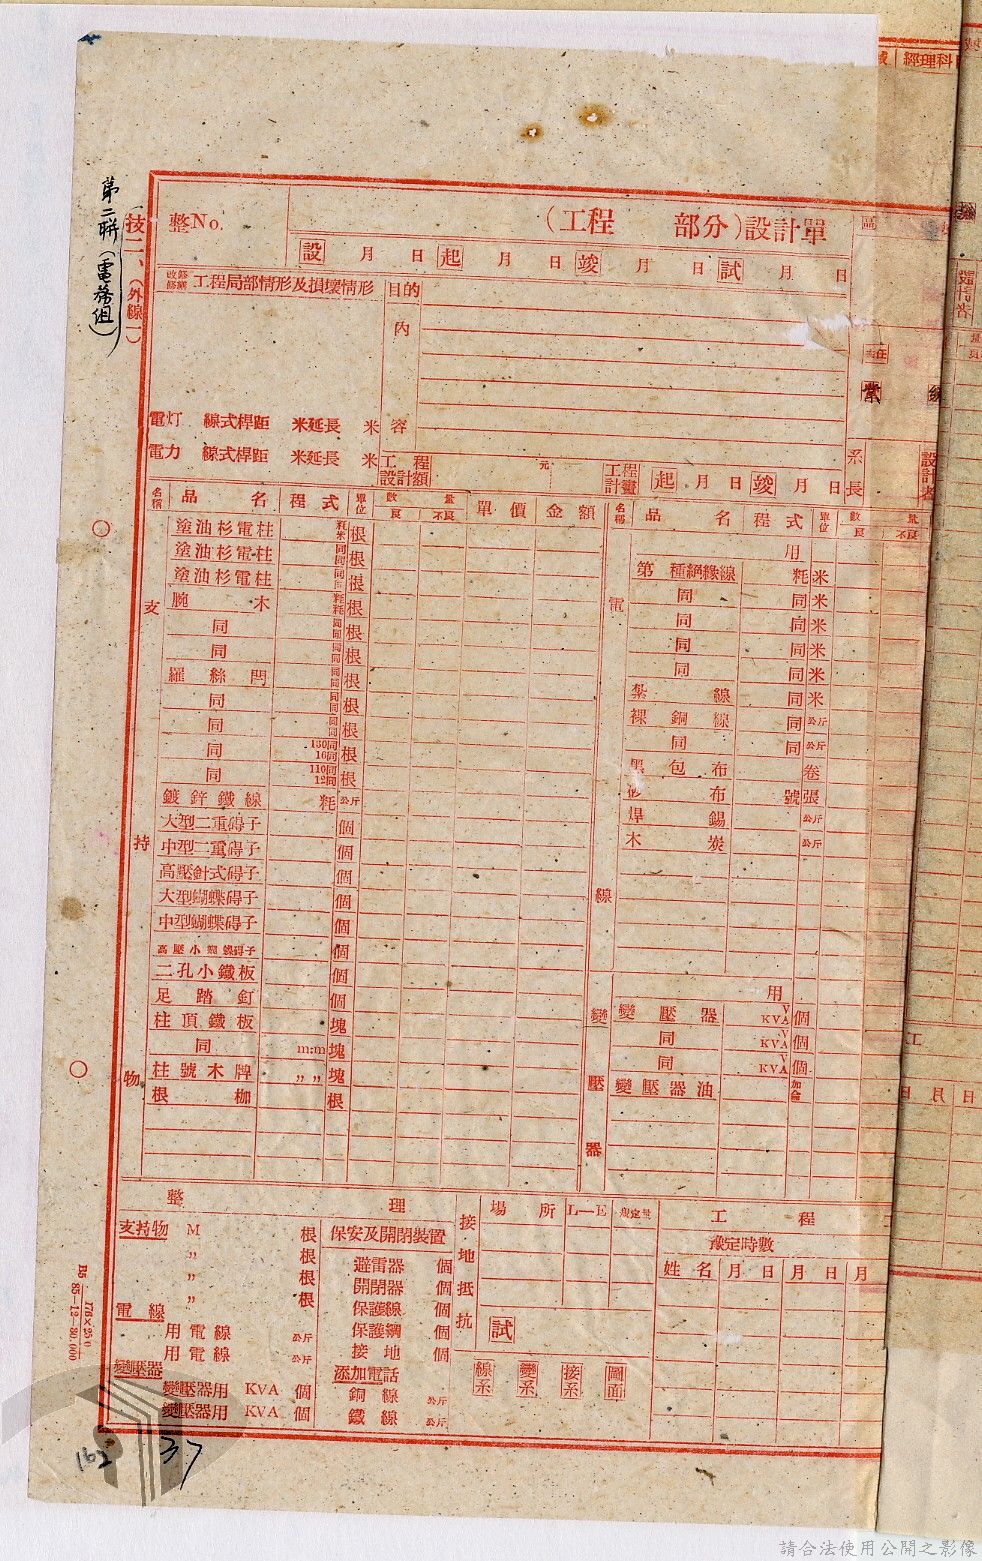 第二聯(電務組)
技二、(外線一)
整No.
(工程 部分)設計單
設 月 日 起 月 日 竣 月 日 試 月 日
工程局部情形及損壞情形
目的
內
容
電灯 線式桿距 米延長 米
電力 線式桿距 米延長 米
工程設計額 元
工程計畫 起 月 日 竣 月 日
名稱 品名 程式 單位 數量 良 不良 單價 金額
支持物
塗油杉電柱 粍米 根
塗油杉電柱 同同 根
塗油杉電柱 同同 根
腕木 粍粍 根
同 同同 根
同 同同 根
羅絲閂 同同 根
同 同同 根
同 同同 根
同 130同 16同 根
同 110同 12同 根
鍍鋅鐵線 粍 公斤
大型二重碍子 個
中型二重碍子 個
高壓針式碍子 個
大型蝴蝶碍子 個
中型蝴蝶碍子 個
高壓小 碍子 個
二孔小鐵板 個
足踏釘 個
柱頂鐵板 塊
同 m:m 塊
柱號木牌 〃〃 塊
根枷 根
名稱 品名 程式 單位 數量 良 不良
電線
用
第 種絕緣線 粍 米
同 同 米
同 同 米
同 同 米
同 同 米
紮線 同 米
裸銅線 同 公斤
同 同 公斤
黑包布 卷
布 號 張
焊錫 公斤
木炭 公斤
變壓器
用
變壓器 V KVA 個
同 V KVA 個
同 V KVA 個
變壓器油 加侖
整理
支持物 M 根
〃 根
〃 根
〃 根
電線
用電線 公斤
用電線 公斤
變壓器
變壓器用 KVA 個
變壓器用 KVA 個
保安及開閉裝置
避雷器 個
開閉器 個
保護線 個
保護網 個
接地 個
添加電話
銅線 公斤
鐵線 公斤
接地抵抗
場所 L—E 規定量
試
線系 變系 接系 圖面
工程
豫定時數
姓名 月 日 月 日 月
B5 176×250
85—12—30,000
162
37
區
主任
業
系長
科理經
設計者
工
日 月 日
請合法使用公開之影像